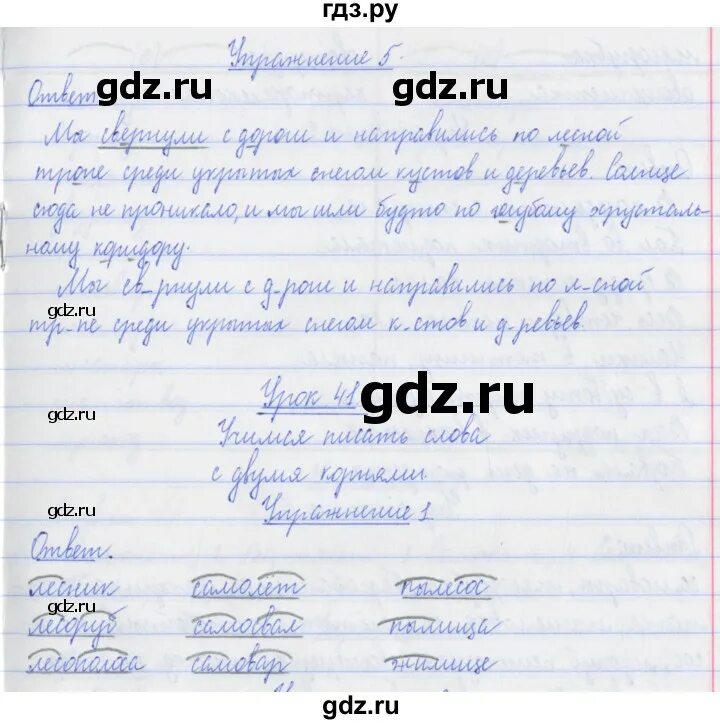 гдз.ру
Упражнение 5.
gdz.ru gdz.ru
Ответ
Мы свернули с дороги и направились по лесной
тропе среди укрытых снегом кустов и деревьев. Солнце
сюда не проникало, и мы шли будто по голубому хрусталь-
ному коридору.
gdz.ru
Мы св_рнули с д_роги и направились по л_сной
тр_пе среди укрытых снегом к_стов и д_ревьев.
Урок 41
gdz.ru
gdz.ru
Учимся писать слова
с двумя корнями.
gdz.ru
Упражнение 1.
Ответ.
лесник самолёт пылесос
gdz.ru
лесоруб самосвал пылища
лесополоса самовар жилище
gdz.ru